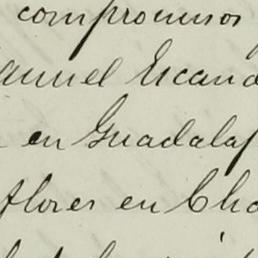 compromisos
anuel Escand
en Guadalaj
flores en Cha